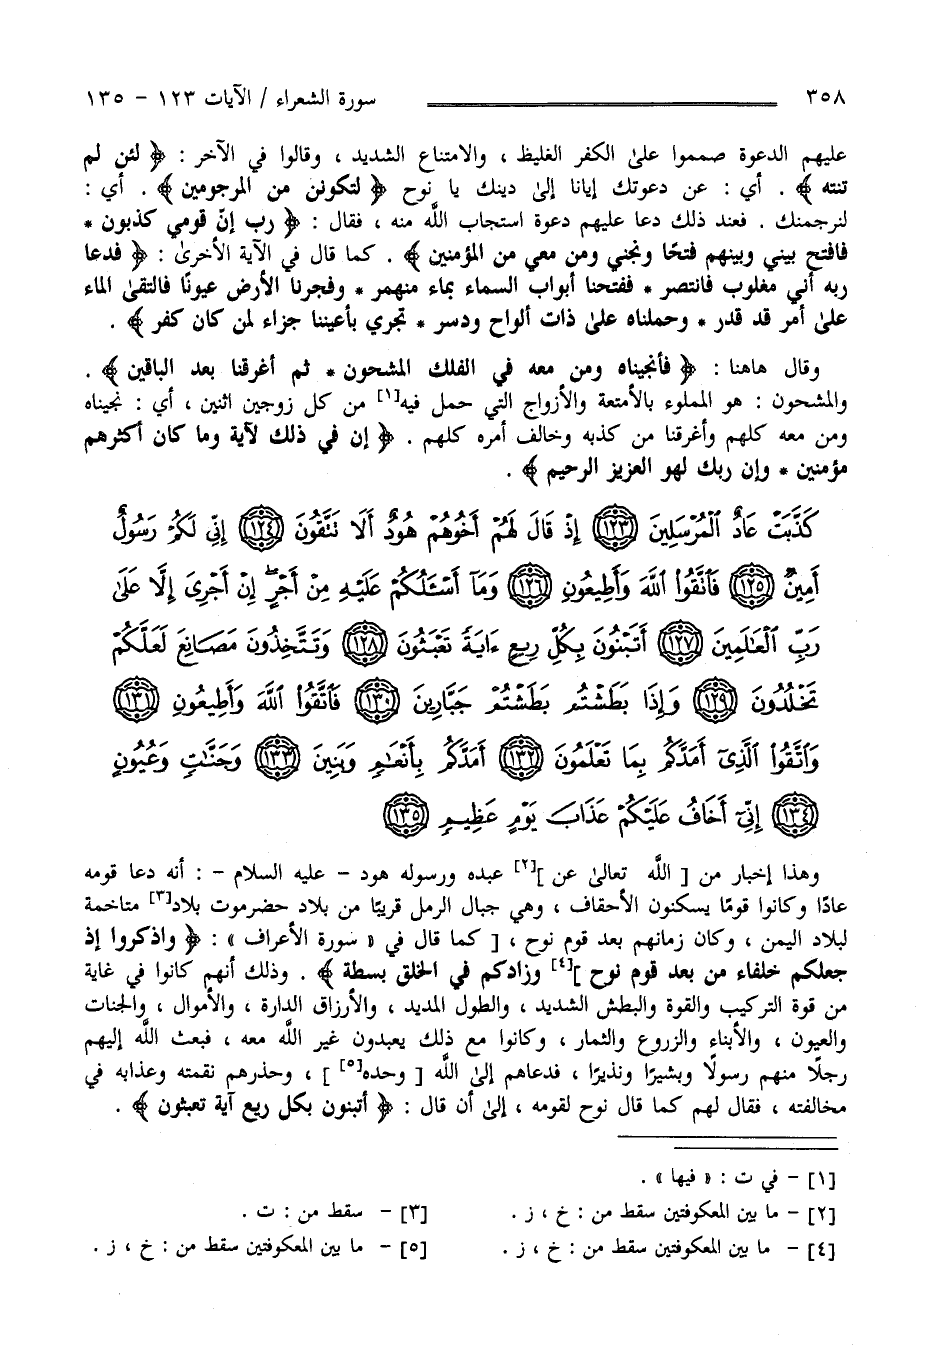 ٣٥٨ سورة الشعراء / الآيات ١٢٣ - ١٣٥
عليهم الدعوة صمموا علىٰ الكفر الغليظ ، والامتناع الشديد ، وقالوا في الآخر : ﴿ لئن لم
تنته ﴾ . أي : عن دعوتك إيانا إلىٰ دينك يا نوح ﴿ لتكونن من المرجومين ﴾ . أي :
لنرجمنك . فعند ذلك دعا عليهم دعوة استجاب اللَّه منه ، فقال : ﴿ رب إنّ قومي كذبون *
فافتح بيني وبينهم فتحًا ونجني ومن معي من المؤمنين ﴾ . كما قال في الآية الأخرىٰ : ﴿ فدعا
ربه أني مغلوب فانتصر * ففتحنا أبواب السماء بماء منهمر * وفجرنا الأرض عيونًا فالتقىٰ الماء
علىٰ أمر قد قدر * وحملناه علىٰ ذات ألواح ودسر * تجري بأعيننا جزاء لمن كان كفر ﴾ .
وقال هاهنا : ﴿ فأنجيناه ومن معه في الفلك المشحون * ثم أغرقنا بعد الباقين ﴾ .
والمشحون : هو المملوء بالأمتعة والأزواج التي حمل فيه[١] من كل زوجين اثنين ، أي : نجيناه
ومن معه كلهم وأغرقنا من كذبه وخالف أمره كلهم . ﴿ إن في ذلك لآية وما كان أكثرهم
مؤمنين * وإن ربك لهو العزيز الرحيم ﴾ .
كَذَّبَتْ عَادٌ ٱلْمُرْسَلِينَ ١٢٣ إِذْ قَالَ لَهُمْ أَخُوهُمْ هُودٌ أَلَا تَتَّقُونَ ١٢٤ إِنِّي لَكُمْ رَسُولٌ
أَمِينٌ ١٢٥ فَٱتَّقُوا۟ ٱللَّهَ وَأَطِيعُونِ ١٢٦ وَمَآ أَسْـَٔلُكُمْ عَلَيْهِ مِنْ أَجْرٍ إِنْ أَجْرِىَ إِلَّا عَلَىٰ
رَبِّ ٱلْعَـٰلَمِينَ ١٢٧ أَتَبْنُونَ بِكُلِّ رِيعٍ ءَايَةً تَعْبَثُونَ ١٢٨ وَتَتَّخِذُونَ مَصَانِعَ لَعَلَّكُمْ
تَخْلُدُونَ ١٢٩ وَإِذَا بَطَشْتُم بَطَشْتُمْ جَبَّارِينَ ١٣٠ فَٱتَّقُوا۟ ٱللَّهَ وَأَطِيعُونِ ١٣١
وَٱتَّقُوا۟ ٱلَّذِىٓ أَمَدَّكُم بِمَا تَعْلَمُونَ ١٣٢ أَمَدَّكُم بِأَنْعَـٰمٍ وَبَنِينَ ١٣٣ وَجَنَّـٰتٍ وَعُيُونٍ
١٣٤ إِنِّىٓ أَخَافُ عَلَيْكُمْ عَذَابَ يَوْمٍ عَظِيمٍ ١٣٥
وهذا إخبار من [ اللَّه تعالىٰ عن ][٢] عبده ورسوله هود - عليه السلام - : أنه دعا قومه
عادًا وكانوا قومًا يسكنون الأحقاف ، وهي جبال الرمل قريبًا من بلاد حضرموت بلاد[٣] متاخمة
لبلاد اليمن ، وكان زمانهم بعد قوم نوح ، [ كما قال في « سورة الأعراف » : ﴿ واذكروا إذ
جعلكم خلفاء من بعد قوم نوح ][٤] وزادكم في الخلق بسطة ﴾ . وذلك أنهم كانوا في غاية
من قوة التركيب والقوة والبطش الشديد ، والطول المديد ، والأرزاق الدارة ، والأموال ، والجنات
والعيون ، والأبناء والزروع والثمار ، وكانوا مع ذلك يعبدون غير اللَّه معه ، فبعث اللَّه إليهم
رجلًا منهم رسولًا وبشيرًا ونذيرًا ، فدعاهم إلىٰ اللَّه [ وحده[٥] ] ، وحذرهم نقمته وعذابه في
مخالفته ، فقال لهم كما قال نوح لقومه ، إلىٰ أن قال : ﴿ أتبنون بكل ريع آية تعبثون ﴾ .
[١] - في ت : « فيها » .
[٢] - ما بين المعكوفتين سقط من : خ ، ز . [٣] - سقط من : ت .
[٤] - ما بين المعكوفتين سقط من : خ ، ز . [٥] - ما بين المعكوفتين سقط من : خ ، ز .